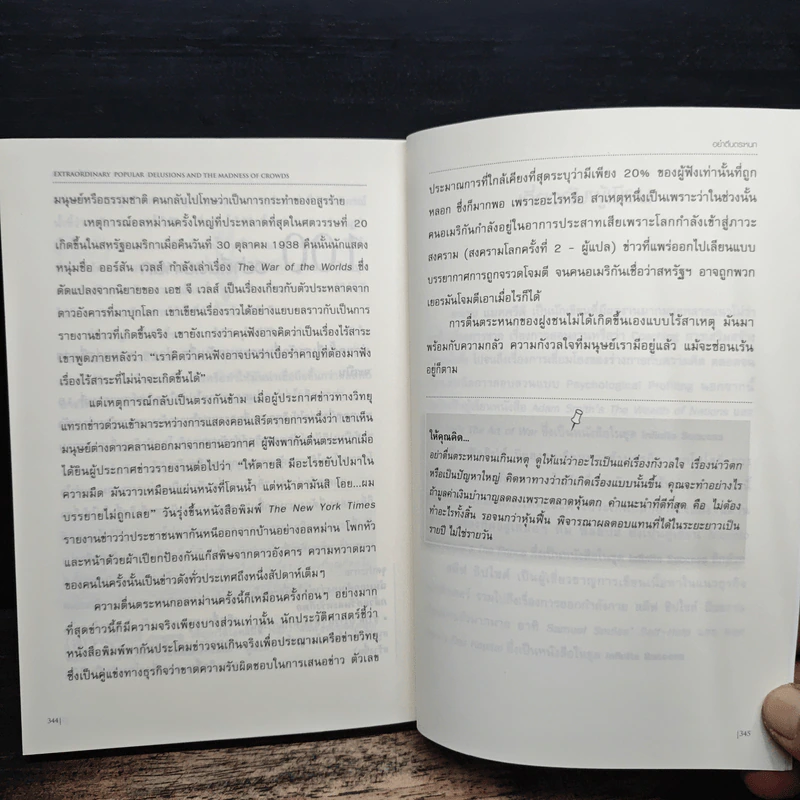 EXTRAORDINARY POPULAR DELUSIONS AND THE MADNESS OF CROWDS
มนุษย์หรือธรรมชาติ คนกลับไปโทษว่าเป็นการกระทำของอสูรร้าย
เหตุการณ์อลหม่านครั้งใหญ่ที่ประหลาดที่สุดในศตวรรษที่ 20
เกิดขึ้นในสหรัฐอเมริกาเมื่อคืนวันที่ 30 ตุลาคม 1938 คืนนั้นนักแสดง
หนุ่มชื่อ ออร์สัน เวลส์ กำลังเล่าเรื่อง The War of the Worlds ซึ่ง
ดัดแปลงจากนิยายของ เอช จี เวลส์ เป็นเรื่องเกี่ยวกับตัวประหลาดจาก
ดาวอังคารที่มาบุกโลก เขาเขียนเรื่องราวได้อย่างแยบยลราวกับเป็นการ
รายงานข่าวที่เกิดขึ้นจริง เขายังเกรงว่าคนฟังอาจคิดว่าเป็นเรื่องไร้สาระ
เขาพูดภายหลังว่า “เราคิดว่าคนฟังอาจบ่นว่าเบื่อรำคาญที่ต้องมาฟัง
เรื่องไร้สาระที่ไม่น่าจะเกิดขึ้นได้”
แต่เหตุการณ์กลับเป็นตรงกันข้าม เมื่อผู้ประกาศข่าวทางวิทยุ
แทรกข่าวด่วนเข้ามาระหว่างการแสดงคอนเสิร์ตรายการหนึ่งว่า เขาเห็น
มนุษย์ต่างดาวคลานออกมาจากยานอวกาศ ผู้ฟังพากันตื่นตระหนกเมื่อ
ได้ยินผู้ประกาศข่าวรายงานต่อไปว่า “ให้ตายสิ มีอะไรขยับไปมาใน
ความมืด มันวาวเหมือนแผ่นหนังที่โดนน้ำ แต่หน้าตามันสิ โอย...ผม
บรรยายไม่ถูกเลย” วันรุ่งขึ้นหนังสือพิมพ์ The New York Times
รายงานข่าวว่าประชาชนพากันหนีออกจากบ้านอย่างอลหม่าน โพกหัว
และหน้าด้วยผ้าเปียกป้องกันแก๊สพิษจากดาวอังคาร ความหวาดผวา
ของคนในครั้งนั้นเป็นข่าวดังทั่วประเทศถึงหนึ่งสัปดาห์เต็มๆ
ความตื่นตระหนกอลหม่านครั้งนี้ก็เหมือนครั้งก่อนๆ อย่างมาก
ที่สุดข่าวนี้ก็มีความจริงเพียงบางส่วนเท่านั้น นักประวัติศาสตร์ชี้ว่า
หนังสือพิมพ์พากันประโคมข่าวจนเกินจริงเพื่อประณามเครือข่ายวิทยุ
ซึ่งเป็นคู่แข่งทางธุรกิจว่าขาดความรับผิดชอบในการเสนอข่าว ตัวเลข
344|
อย่าตื่นตระหนก
ประมาณการที่ใกล้เคียงที่สุดระบุว่ามีเพียง 20% ของผู้ฟังเท่านั้นที่ถูก
หลอก ซึ่งก็มากพอ เพราะอะไรหรือ สาเหตุหนึ่งเป็นเพราะว่าในช่วงนั้น
คนอเมริกันกำลังอยู่ในอาการประสาทเสียเพราะโลกกำลังเข้าสู่ภาวะ
สงคราม (สงครามโลกครั้งที่ 2 - ผู้แปล) ข่าวที่แพร่ออกไปเลียนแบบ
บรรยากาศการถูกจรวดโจมตี จนคนอเมริกันเชื่อว่าสหรัฐฯ อาจถูกพวก
เยอรมันโจมตีเอาเมื่อไรก็ได้
การตื่นตระหนกของฝูงชนไม่ได้เกิดขึ้นเองแบบไร้สาเหตุ มันมา
พร้อมกับความกลัว ความกังวลใจที่มนุษย์เรามีอยู่แล้ว แม้จะซ่อนเร้น
อยู่ก็ตาม
ให้คุณคิด...
อย่าตื่นตระหนกจนเกินเหตุ ดูให้แน่ว่าอะไรเป็นแค่เรื่องกังวลใจ เรื่องน่าวิตก
หรือเป็นปัญหาใหญ่ คิดหาทางว่าถ้าเกิดเรื่องแบบนั้นขึ้น คุณจะทำอย่างไร
ถ้ามูลค่าเงินบำนาญลดลงเพราะตลาดหุ้นตก คำแนะนำที่ดีที่สุด คือ ไม่ต้อง
ทำอะไรทั้งสิ้น รอจนกว่าหุ้นฟื้น พิจารณาผลตอบแทนที่ได้ในระยะยาวเป็น
รายปี ไม่ใช่รายวัน
|345